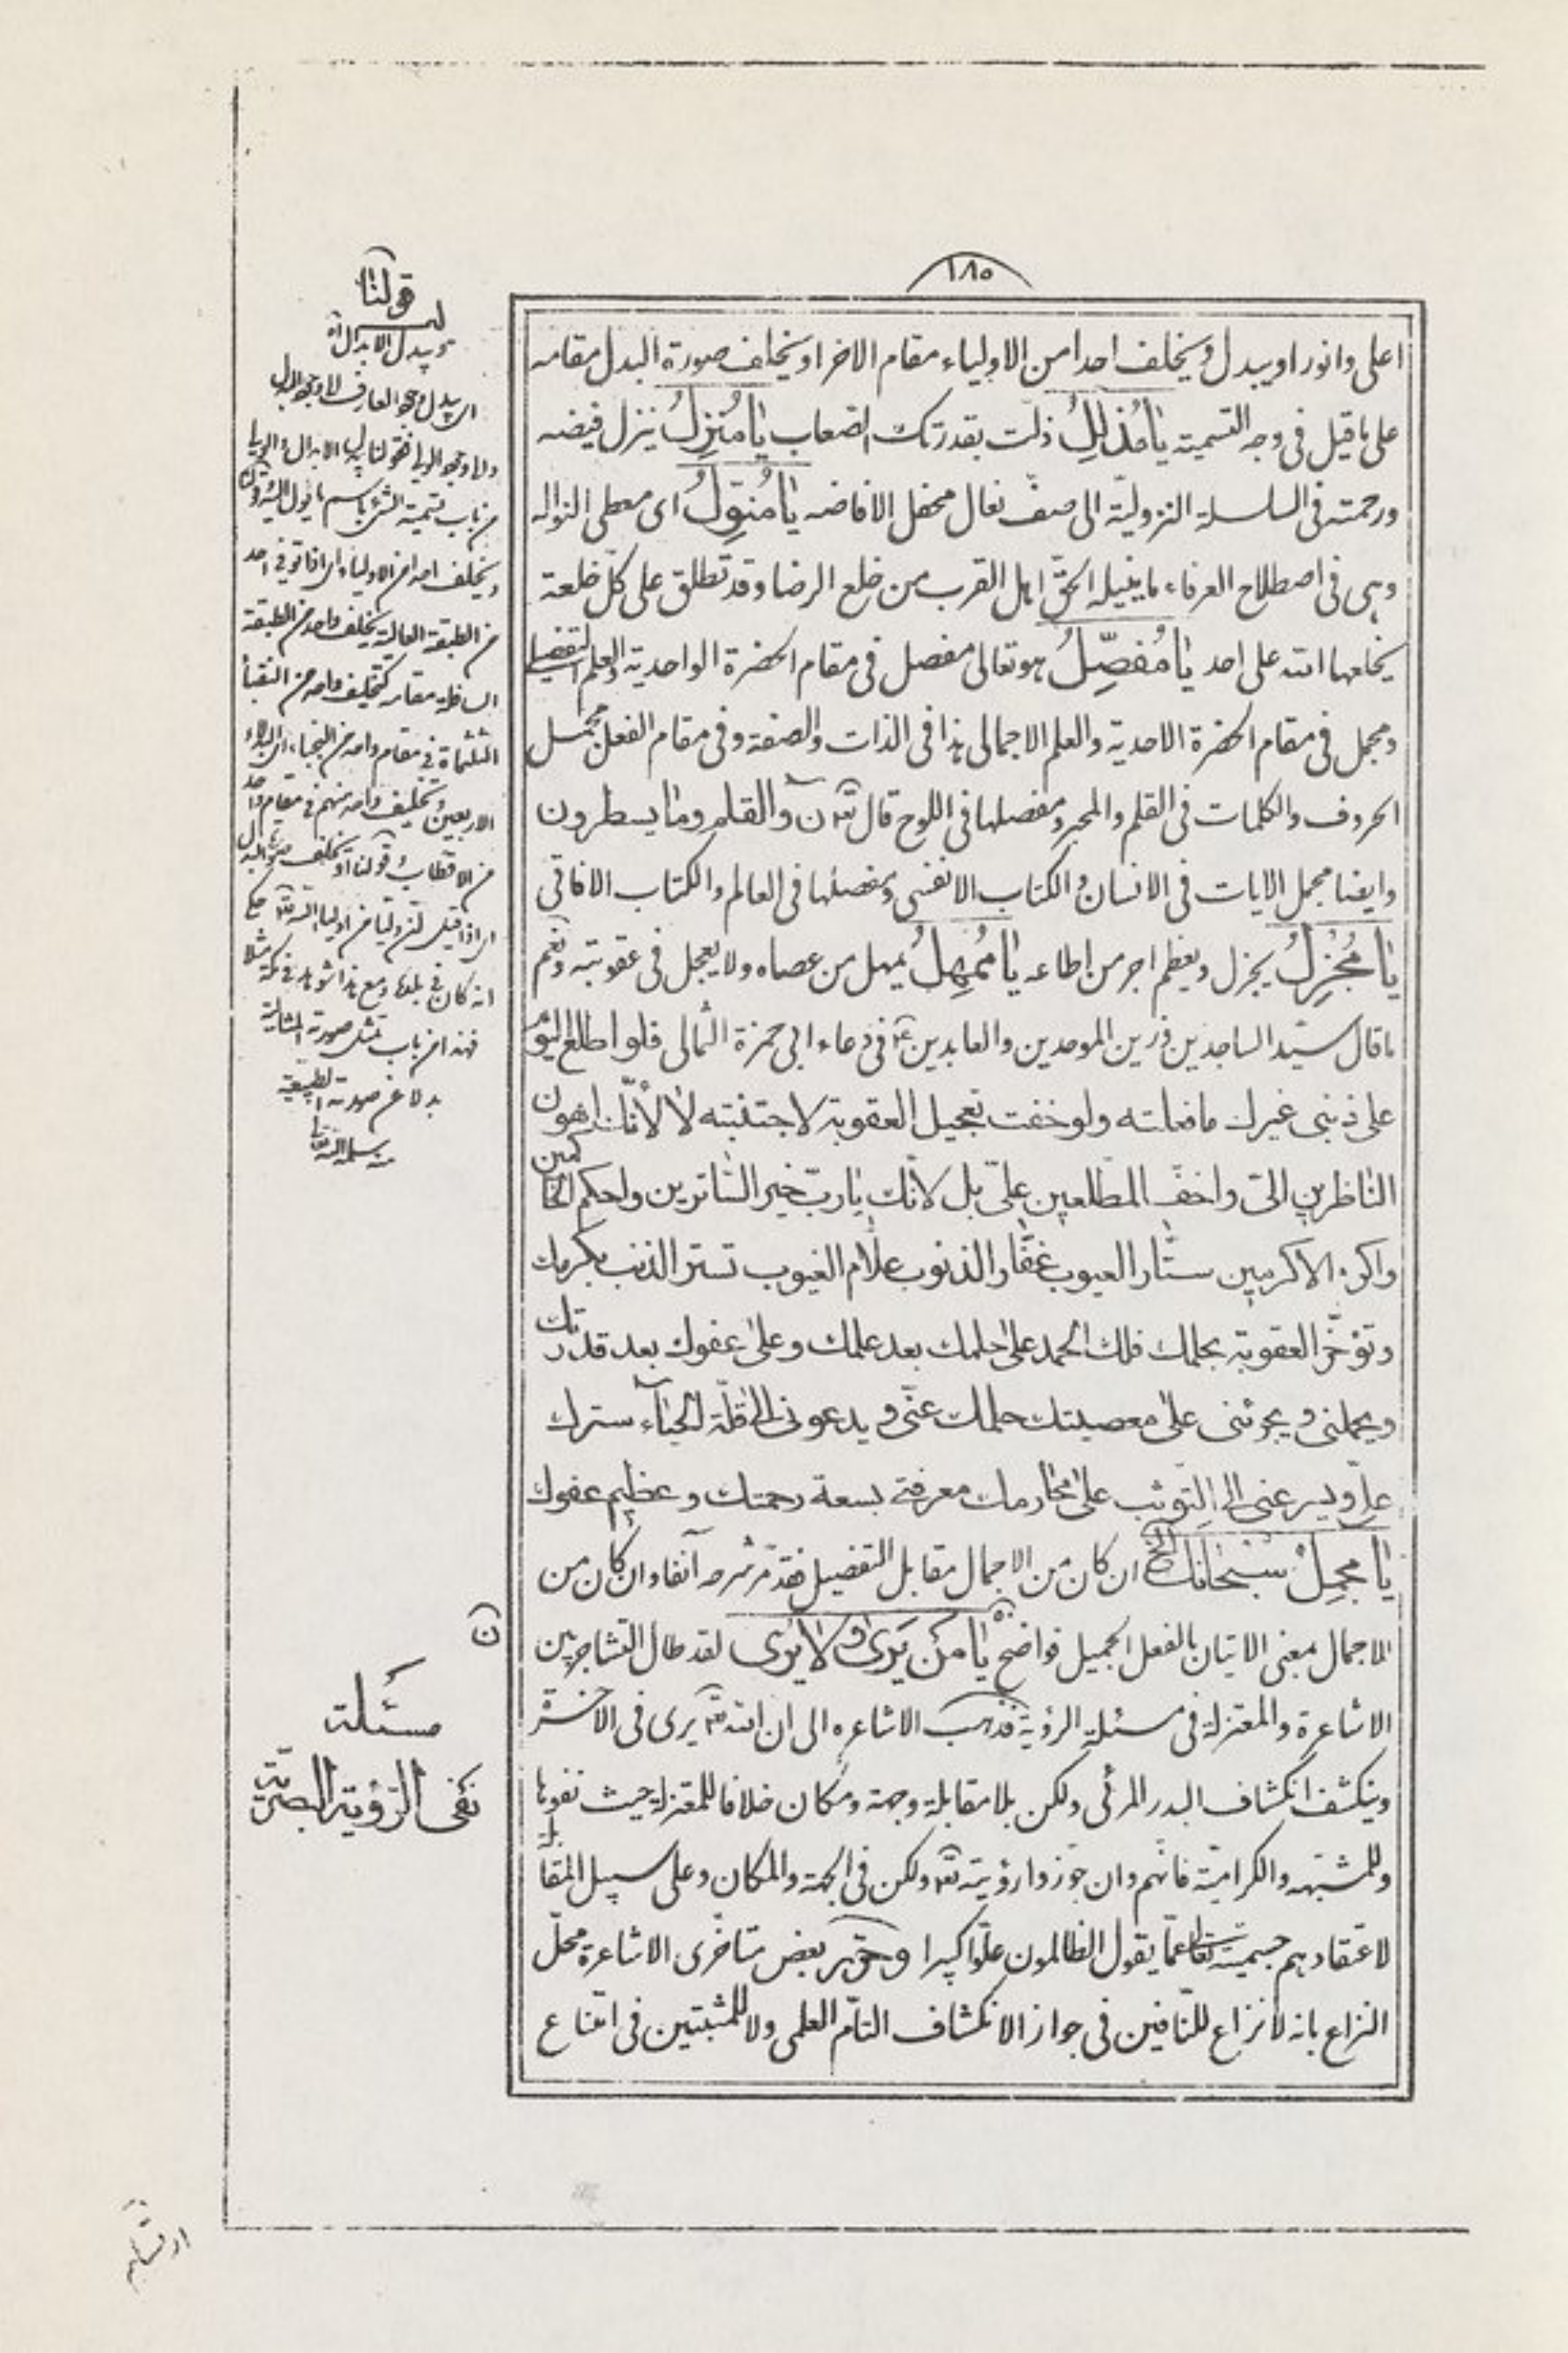 ١٨٥
اعلى وانور او يبدل و يخلف احدا من الاولياء مقام الاخر او يخلف صورة البدل مقامه
على ما قيل فى وجه التسمية يا مُذَلِّلُ ذلّت بقدرتك الصعاب يا مُنزِلُ ينزل فيضه
ورحمته فى السلسلة النزوليّة الى صفّ نعال محفل الافاضه يا مُنَوِّلُ اى معطى النواله
وهى فى اصطلاح العرفاء ما ينيله الحقّ اهل القرب من خلع الرضا وقد تطلق على كلّ خلعة
يخلعها الله على احد يا مُفَصِّلُ هو تعالى مفصل فى مقام الحضرة الواحدية والعلم التفصيلى
ومجمل فى مقام الحضرة الاحدية والعلم الاجمالى هذا فى الذات والصفة وفى مقام الفعل مجمل
الحروف والكلمات فى القلم والمحبر ومفصلها فى اللوح قال تعّ نٓ والقلم وما يسطرون
وايضا مجمل الايات فى الانسان و الكتاب الانفسى ومفصلها فى العالم والكتاب الافاقى
يا مُجْزِلُ يجزل ويعظم اجر من اطاعه يا مُمْهِلُ يمهل من عصاه ولا يعجل فى عقوبته ونعم
ما قال سيّد الساجدين وزين الموحدين والعابدين ع فى دعاء ابى حمزة الثمالى فلو اطلع اليوم
على ذنبى غيرك ما فعلته ولو خفت تعجيل العقوبة لاجتنبته لا لأنّك اهون
الناظرين الىّ واخفّ المطّلعين علىّ بل لانّك يا ربّ خير السّاترين واحكم الحاكمين
واكرم الاكرمين ستّار العيوب غفّار الذنوب علّام الغيوب تستر الذنب بكرمك
وتؤخّر العقوبة بحلمك فلك الحمد على حلمك بعد علمك وعلى عفوك بعد قدرتك
ويحملنى و يجرئنى على معصيتك حلمك عنّى و يدعونى الى قلّة الحياء سترك
علىّ ويسرعنى الى التّوثب على محارمك معرفتى بسعة رحمتك وعظيم عفوك
يا مُجمِلُ سُبْحانَكَ الخ ان كان من الاجمال مقابل التفصيل فقد مرّ شرحه آنفا وان كان من
الاجمال بمعنى الاتيان بالفعل الجميل فواضح يا مَنْ يَرى ولا يُرى لقد طال التشاجر بين
الاشاعرة والمعتزلة فى مسئلة الرؤية فذهب الاشاعره الى ان الله تعّ يرى فى الاخرة
وينكشف انكشاف البدر المرئى ولكن بلا مقابلة وجهة ومكان خلافا للمعتزلة حيث نفوها
وللمشبّهه والكراميّة فانّهم وان جوّزوا رؤيته تعّ ولكن فى الجهة والمكان وعلى سبيل المقابلة
لاعتقادهم جسميته تعالى عمّا يقول الظالمون علوّا كبيرا وحرّر بعض متاخّرى الاشاعرة محلّ
النزاع بانه لا نزاع للنّافين فى جواز الانكشاف التامّ العلمى ولا للمثبتين فى امتناع
قولنا
او يبدل الابدال
اى يبدل وجه العارف
من باب تسمية الشئ باسم ما يؤل اليه
ويخلف احدا من الاولياء
من الطبقة العالية يخلف واحد من الطبقة
السافلة مقامه كتخليف واحد من النقباء
الثلثمأة فى مقام واحد من النجباء
الاربعين وتخليف واحد منهم فى مقام واحد
من الاقطاب وقولنا او يخلف صورة البدل
انه كان فى بلده ومع هذا شوهد فى مكة مثلا
فهذا من باب تمثل صورته المثالية
بدلا عن صورته الطبيعيّة
منه سلمه الله تعالى
ن
مسئلة
نفى الرّؤية البصريّة